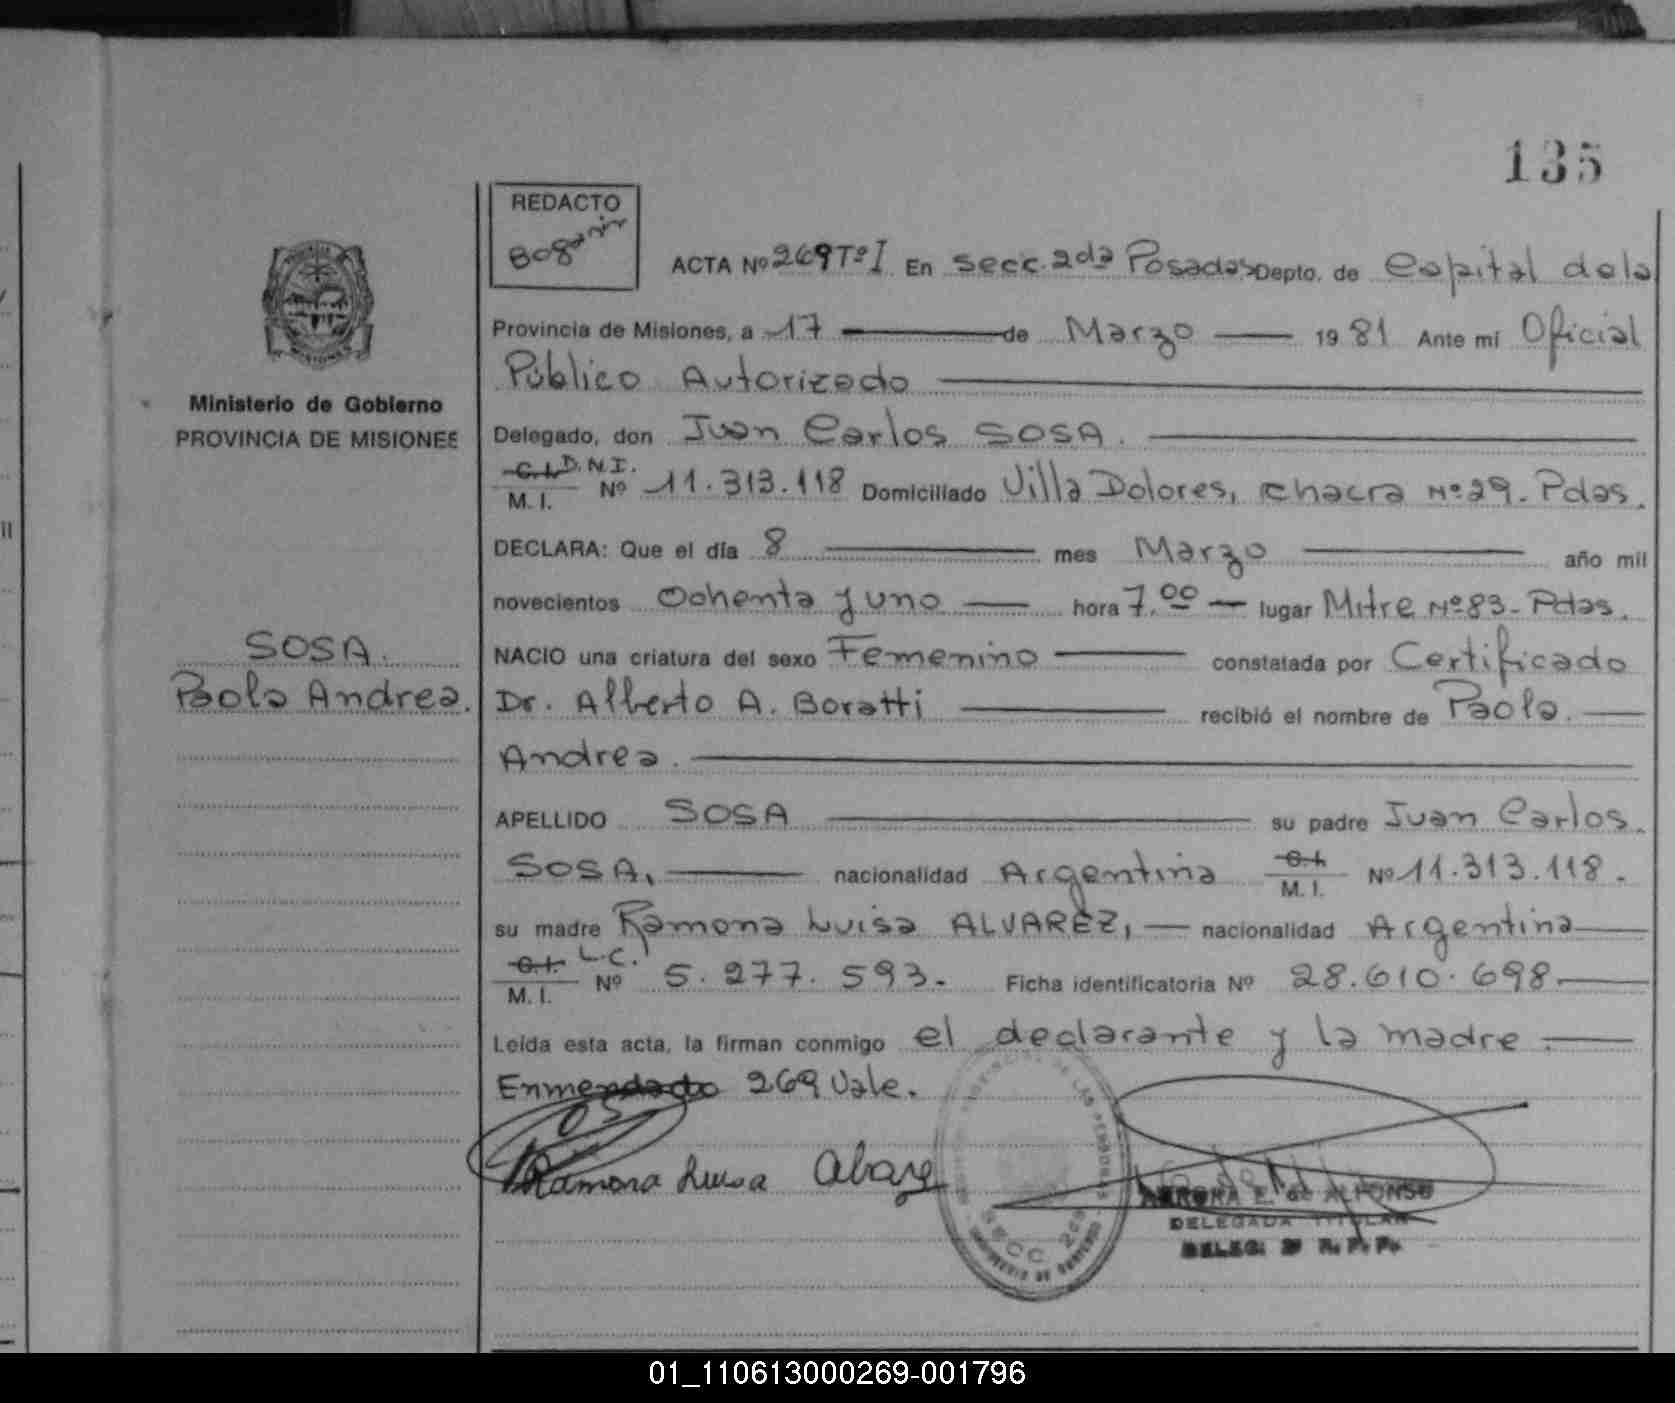 135
REDACTO
ACTA Nº 269 Tº I En secc. 2da Posadas Depto. de Capital de la
Provincia de Misiones, a 17 de Marzo 1981 Ante mí Oficial
Público Autorizado
Ministerio de Gobierno
PROVINCIA DE MISIONES
Delegado, don Juan Carlos SOSA.
C.I. D.N.I.
M. I. Nº 11.313.118 Domiciliado Villa Dolores, chacra Nº 29. Pdas.
DECLARA: Que el día 8 mes Marzo año mil
novecientos Ochenta y uno hora 7.00 lugar Mitre Nº 83 - Pdas.
SOSA.
Paola Andrea.
NACIO una criatura del sexo Femenino constatada por Certificado
Dr. Alberto A. Boratti recibió el nombre de Paola.
Andrea.
APELLIDO SOSA su padre Juan Carlos.
SOSA, nacionalidad Argentina C.I. M. I. Nº 11.313.118.
su madre Ramona Luisa ALVAREZ, nacionalidad Argentina
C.I. L.C.
M. I. Nº 5.277.593. Ficha identificatoria Nº 28.610.698.
Leída esta acta, la firman conmigo el declarante y la madre.
Enmendado 269 Vale.
Ramona Luisa
SECC. 2da
AURORA E. de ALFONSO
DELEGADA TITULAR
DELEG. 2ª R. P. P.
01_110613000269-001796